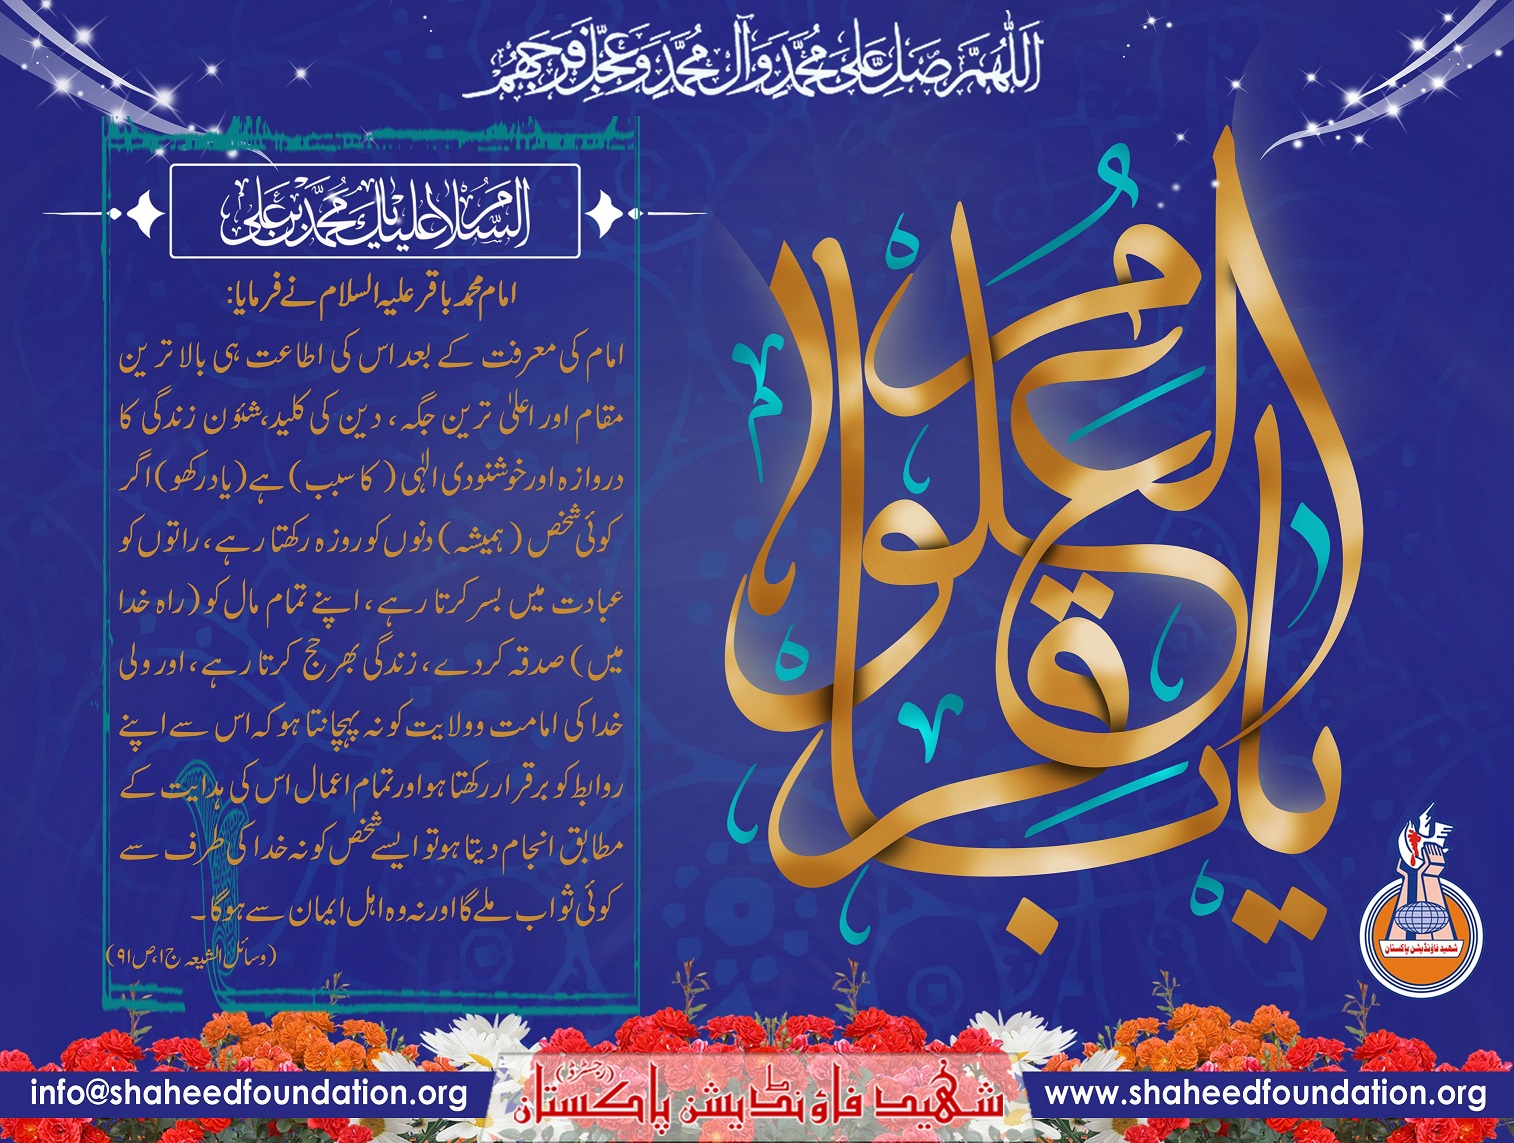 اللهم صل علی محمد وآل محمد وعجل فرجهم
السلام علیک یا محمد بن علی
امام محمد باقر علیہ السلام نے فرمایا:
امام کی معرفت کے بعد اس کی اطاعت ہی بالا ترین
مقام اور اعلیٰ ترین جگہ، دین کی کلید،شئون زندگی کا
دروازہ اور خوشنودی الٰہی ( کا سبب) ہے (یاد رکھو) اگر
کوئی شخص (ہمیشہ) دنوں کو روزہ رکھتا رہے، راتوں کو
عبادت میں بسر کرتا رہے، اپنے تمام مال کو (راہ خدا
میں) صدقہ کردے، زندگی بھر حج کرتا رہے، اور ولی
خدا کی امامت وولایت کو نہ پہچانتا ہو کہ اس سے اپنے
روابط کو برقرار رکھتا ہو اور تمام اعمال اس کی ہدایت کے
مطابق انجام دیتا ہو تو ایسے شخص کو نہ خدا کی طرف سے
کوئی ثواب ملے گا اور نہ وہ اہل ایمان سے ہوگا۔
(وسائل الشیعہ ج۱،ص۹۱)
یا باقر العلوم
شہید فاؤنڈیشن پاکستان
info@shaheedfoundation.org
شہید فاؤنڈیشن پاکستان (رجسٹرڈ)
www.shaheedfoundation.org